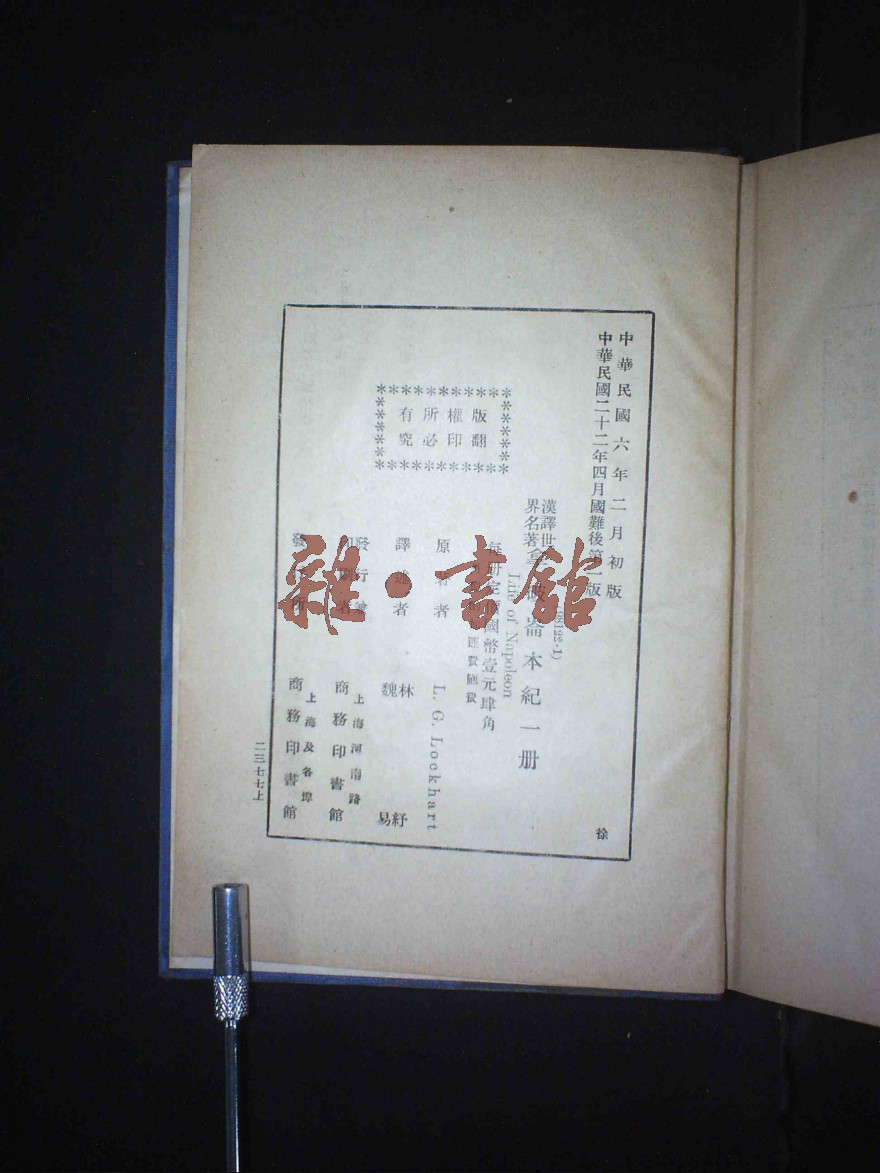 中華民國六年二月初版
中華民國二十二年四月國難後第一版
漢譯世
界名著
本紀一册
Life of Napoleon
每册定價國幣壹元肆角
運費匯費
版權所有
翻印必究
原著者 L. G. Lockhart
譯述者 林紓
魏易
發行兼
印刷者
上海河南路
商務印書館
發行所
上海及各埠
商務印書館
二三七七上
徐
雜·書館